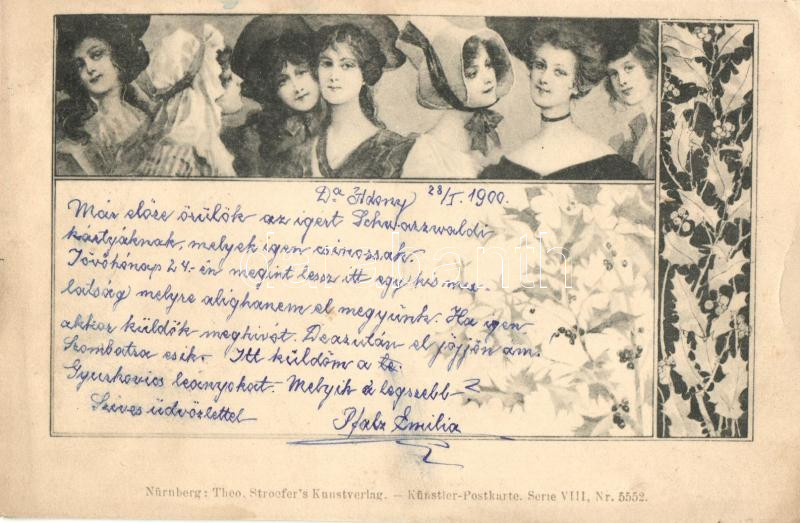 Da Adony 28/I. 1900.
Már előre örülök az igért Schwarzwaldi
kártyáknak, melyek igen csinossak.
Jövőhónap 24.-én megint lessz itt egy kis mu-
latság melyre alighanem el megyünk. Ha igen
akkor küldök meghivót. De azután el jöjjön am.
Szombatra esik. Itt küldöm a te.
Gyurkovics leányokat. Melyik a legszebb?
Szives üdvözlettel Pfalz Emilia
Nürnberg: Theo. Stroefer's Kunstverlag. — Künstler-Postkarte. Serie VIII, Nr. 5552.